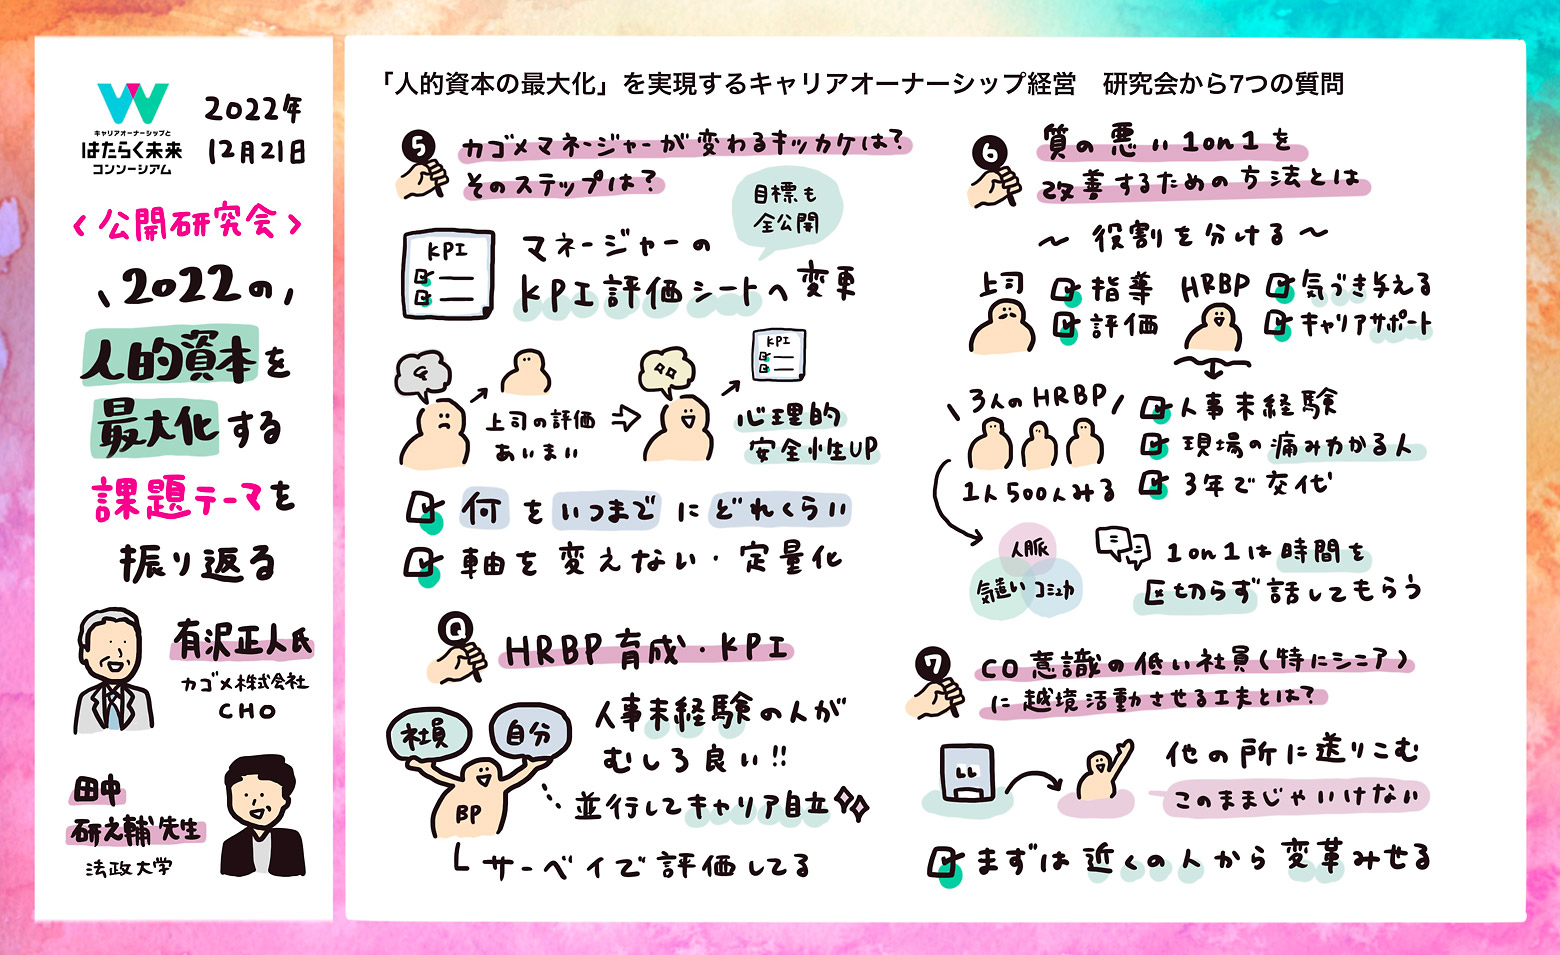 キャリアオーナーシップと
はたらく未来
コンソーシアム
2022年
12月21日
〈公開研究会〉
2022の
人的資本を
最大化する
課題テーマを
振り返る
有沢正人氏
カゴメ株式会社
CHO
田中
研之輔先生
法政大学
「人的資本の最大化」を実現するキャリアオーナーシップ経営　研究会から7つの質問
5
カゴメマネージャーが変わるキッカケは?
そのステップは?
目標も
全公開
KPI
マネージャーの
KPI評価シートへ変更
上司の評価
あいまい
KPI
心理的
安全性UP
何をいつまでにどれくらい
軸を変えない・定量化
Q
HRBP育成・KPI
社員
自分
BP
人事未経験の人が
むしろ良い!!
並行してキャリア自立
サーベイで評価してる
6
質の悪い1on1を
改善するための方法とは
〜役割を分ける〜
上司
指導
評価
HRBP
気づき与える
キャリアサポート
3人のHRBP
1人500人みる
人事未経験
現場の痛みわかる人
3年で交代
人脈
気遣い
コミュカ
1on1は時間を
区切らず話してもらう
7
CO意識の低い社員(特にシニア)
に越境活動させる工夫とは?
他の所に送りこむ
このままじゃいけない
まずは近くの人から変革みせる